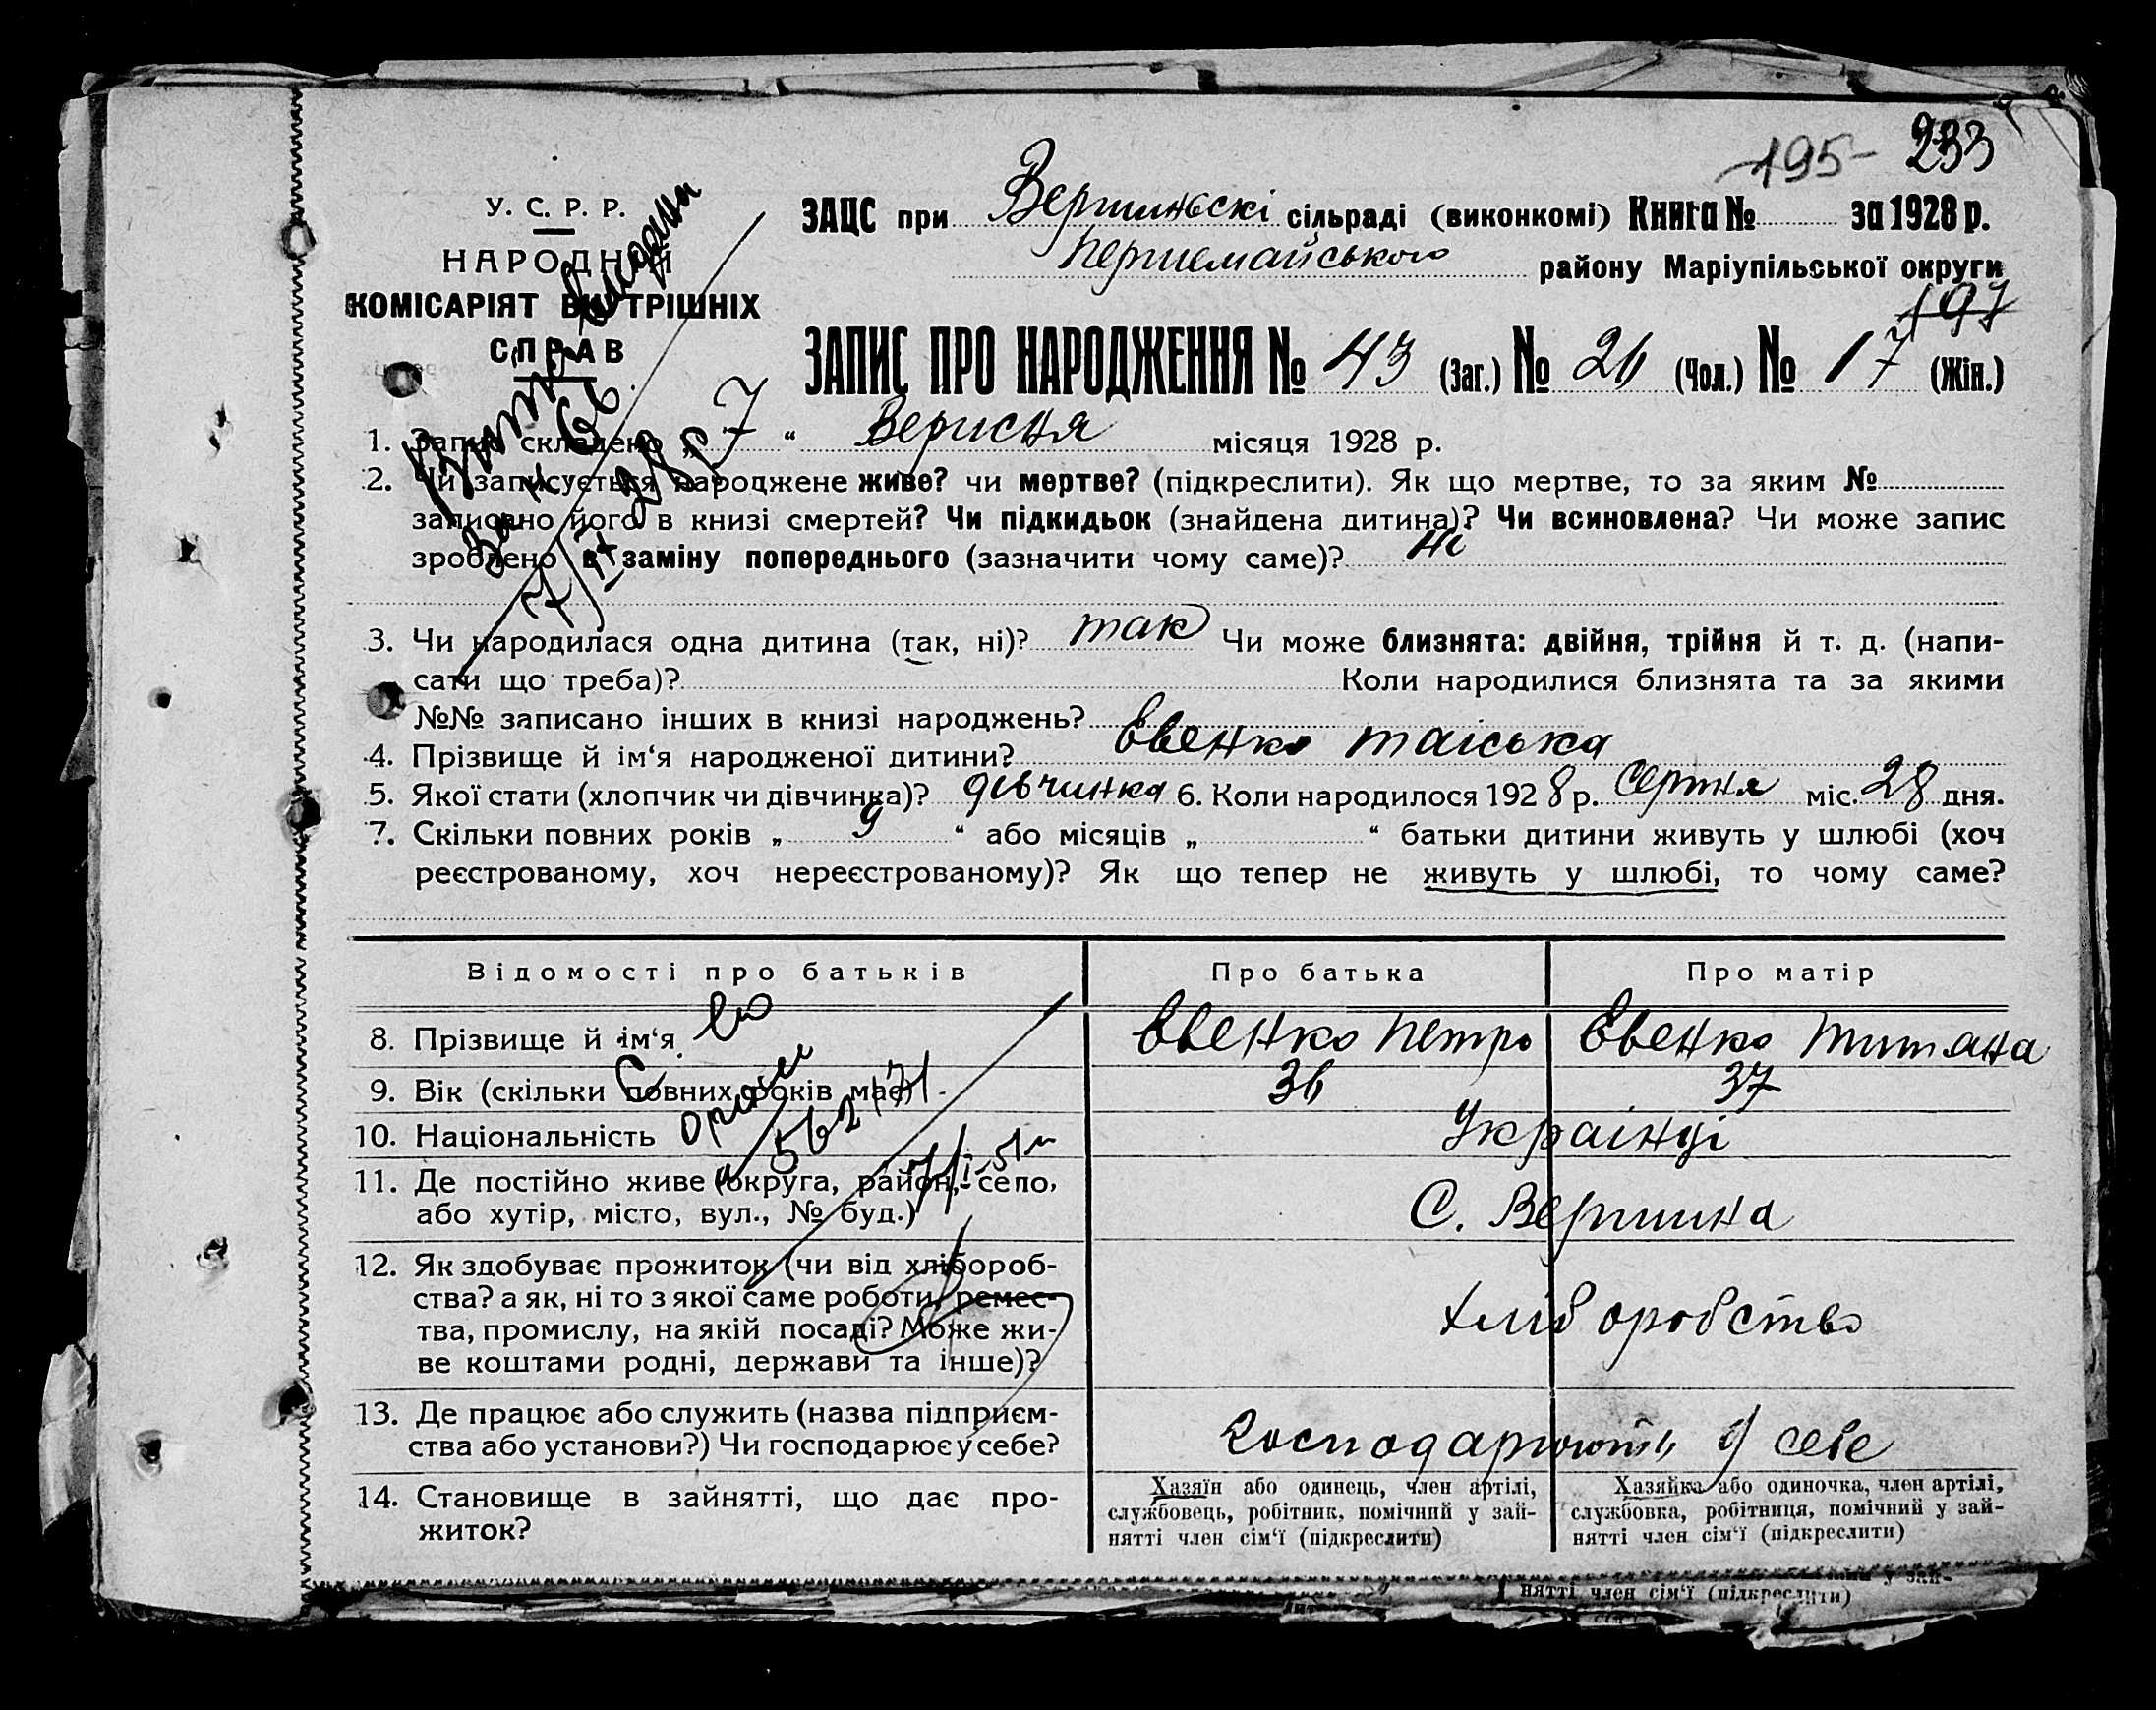 195- 233
У. С. Р. Р.
НАРОДНІЙ
КОМІСАРІЯТ ВНУТРІШНІХ
СПРАВ
ЗАЦС при Вершиньскі сільраді (виконкомі) Книга № за 1928 р.
Першемайського району Маріупільської округи
197
ЗАПИС ПРО НАРОДЖЕННЯ № 43 (Заг.) № 26 (Чол.) № 17 (Жін.)
Витяг видана
за № 66.
7/IX 28 р
1. Запис складено „ 7 “ Верисня місяця 1928 р.
2. Чи записується народжене живе? чи мертве? (підкреслити). Як що мертве, то за яким №
записано його в книзі смертей? Чи підкидьок (знайдена дитина)? Чи всиновлена? Чи може запис
зроблено в заміну попереднього (зазначити чому саме)? Ні
3. Чи народилася одна дитина (так, ні)? так Чи може близнята: двійня, трійня й т. д. (напи-
сати що треба)? Коли народилися близнята та за якими
№№ записано інших в книзі народжень?
4. Прізвище й ім‘я народженої дитини? Євенко таіська
5. Якої стати (хлопчик чи дівчинка)? дівчинка 6. Коли народилося 1928 р. Серпня міс. 28 дня.
7. Скільки повних років „ 9 “ або місяців „ “ батьки дитини живуть у шлюбі (хоч
реєстрованому, хоч нереєстрованому)? Як що тепер не живуть у шлюбі, то чому саме?
Відомості про батьків Про батька Про матір
8. Прізвище й ім‘я Євенко Петро Євенко Титяна
9. Вік (скільки повних років має) 36 37
10. Національність Українці
11. Де постійно живе (округа, район, село,
або хутір, місто, вул., № буд.) С. Вершина
12. Як здобуває прожиток (чи від хлібороб-
ства? а як, ні то з якої саме роботи, ремес-
тва, промислу, на якій посаді? Може жи-
ве коштами родні, держави та інше)? хліборобство
13. Де працює або служить (назва підприєм-
ства або установи?) Чи господарює у себе? Господарюють у себе
14. Становище в зайнятті, що дає про-
житок?
Хазяїн або одинець, член артілі,
службовець, робітник, помічний у зай-
нятті член сім‘ї (підкреслити)
Хазяйка або одиночка, член артілі,
службовка, робітниця, помічний у зай-
нятті член сім‘ї (підкреслити)
нятті член сім‘ї (підкреслити)